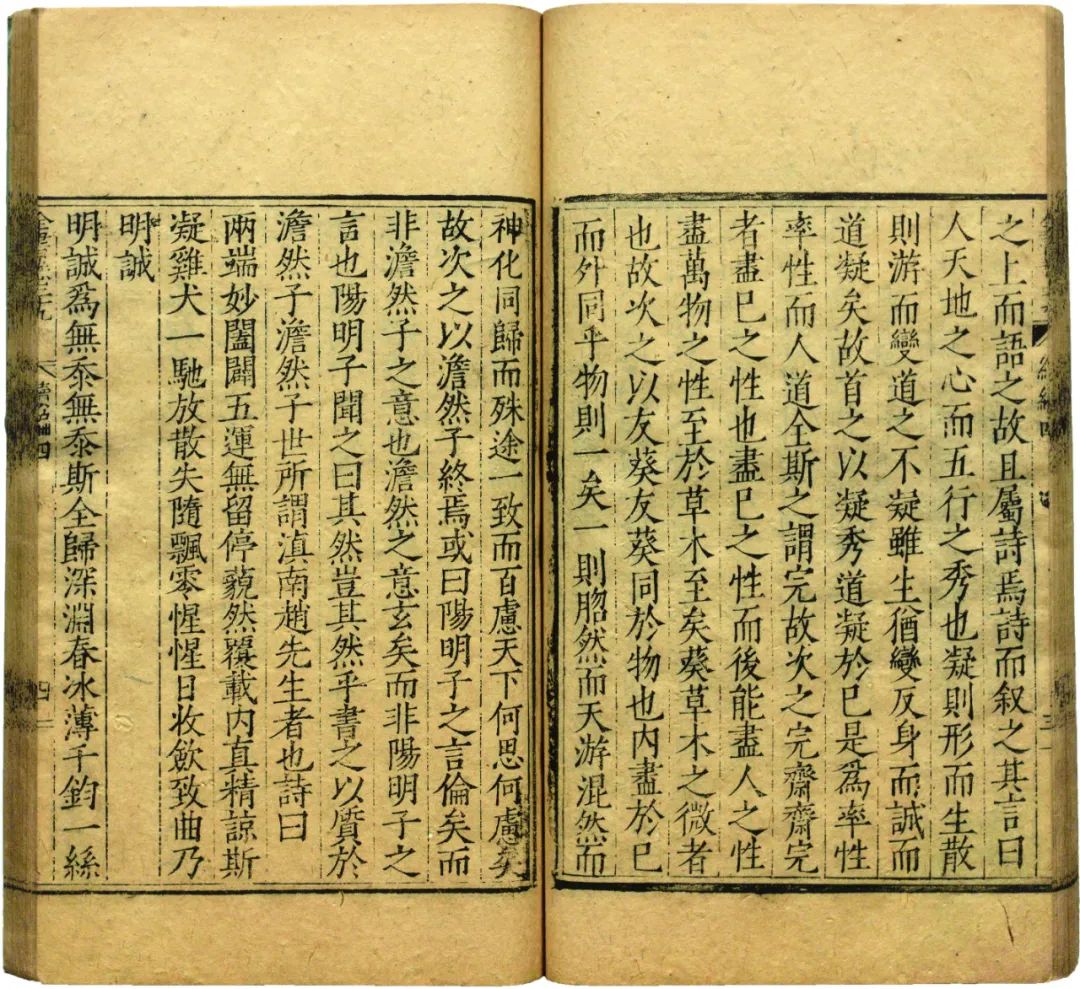 之上而語之故且屬詩焉詩而叙之其言曰
人天地之心而五行之秀也凝則形而生散
則游而變道之不凝雖生猶變反身而誠而
道凝矣故首之以凝秀道凝於己是爲率性
率性而人道全斯之謂完故次之完齋齋完
者盡己之性也盡己之性而後能盡人之性
盡萬物之性至於草木至矣葵草木之微者
也故次之以友葵友葵同於物也内盡於己
而外同乎物則一矣一則脗然而天游混然而
神化同歸而殊途一致而百慮天下何思何慮矣
故次之以澹然子終焉或曰陽明子之言倫矣而
非澹然子之意也澹然之意玄矣而非陽明子之
言也陽明子聞之曰其然豈其然乎書之以質於
澹然子澹然子世所謂滇南趙先生者也詩曰
兩端妙闔闢五運無留停藐然覆載内直精諒斯
凝雞犬一馳放散失隨飄零惺惺日收歛致曲乃
明誠
明誠爲無忝無忝斯全歸深淵春冰薄千鈞一絲
四